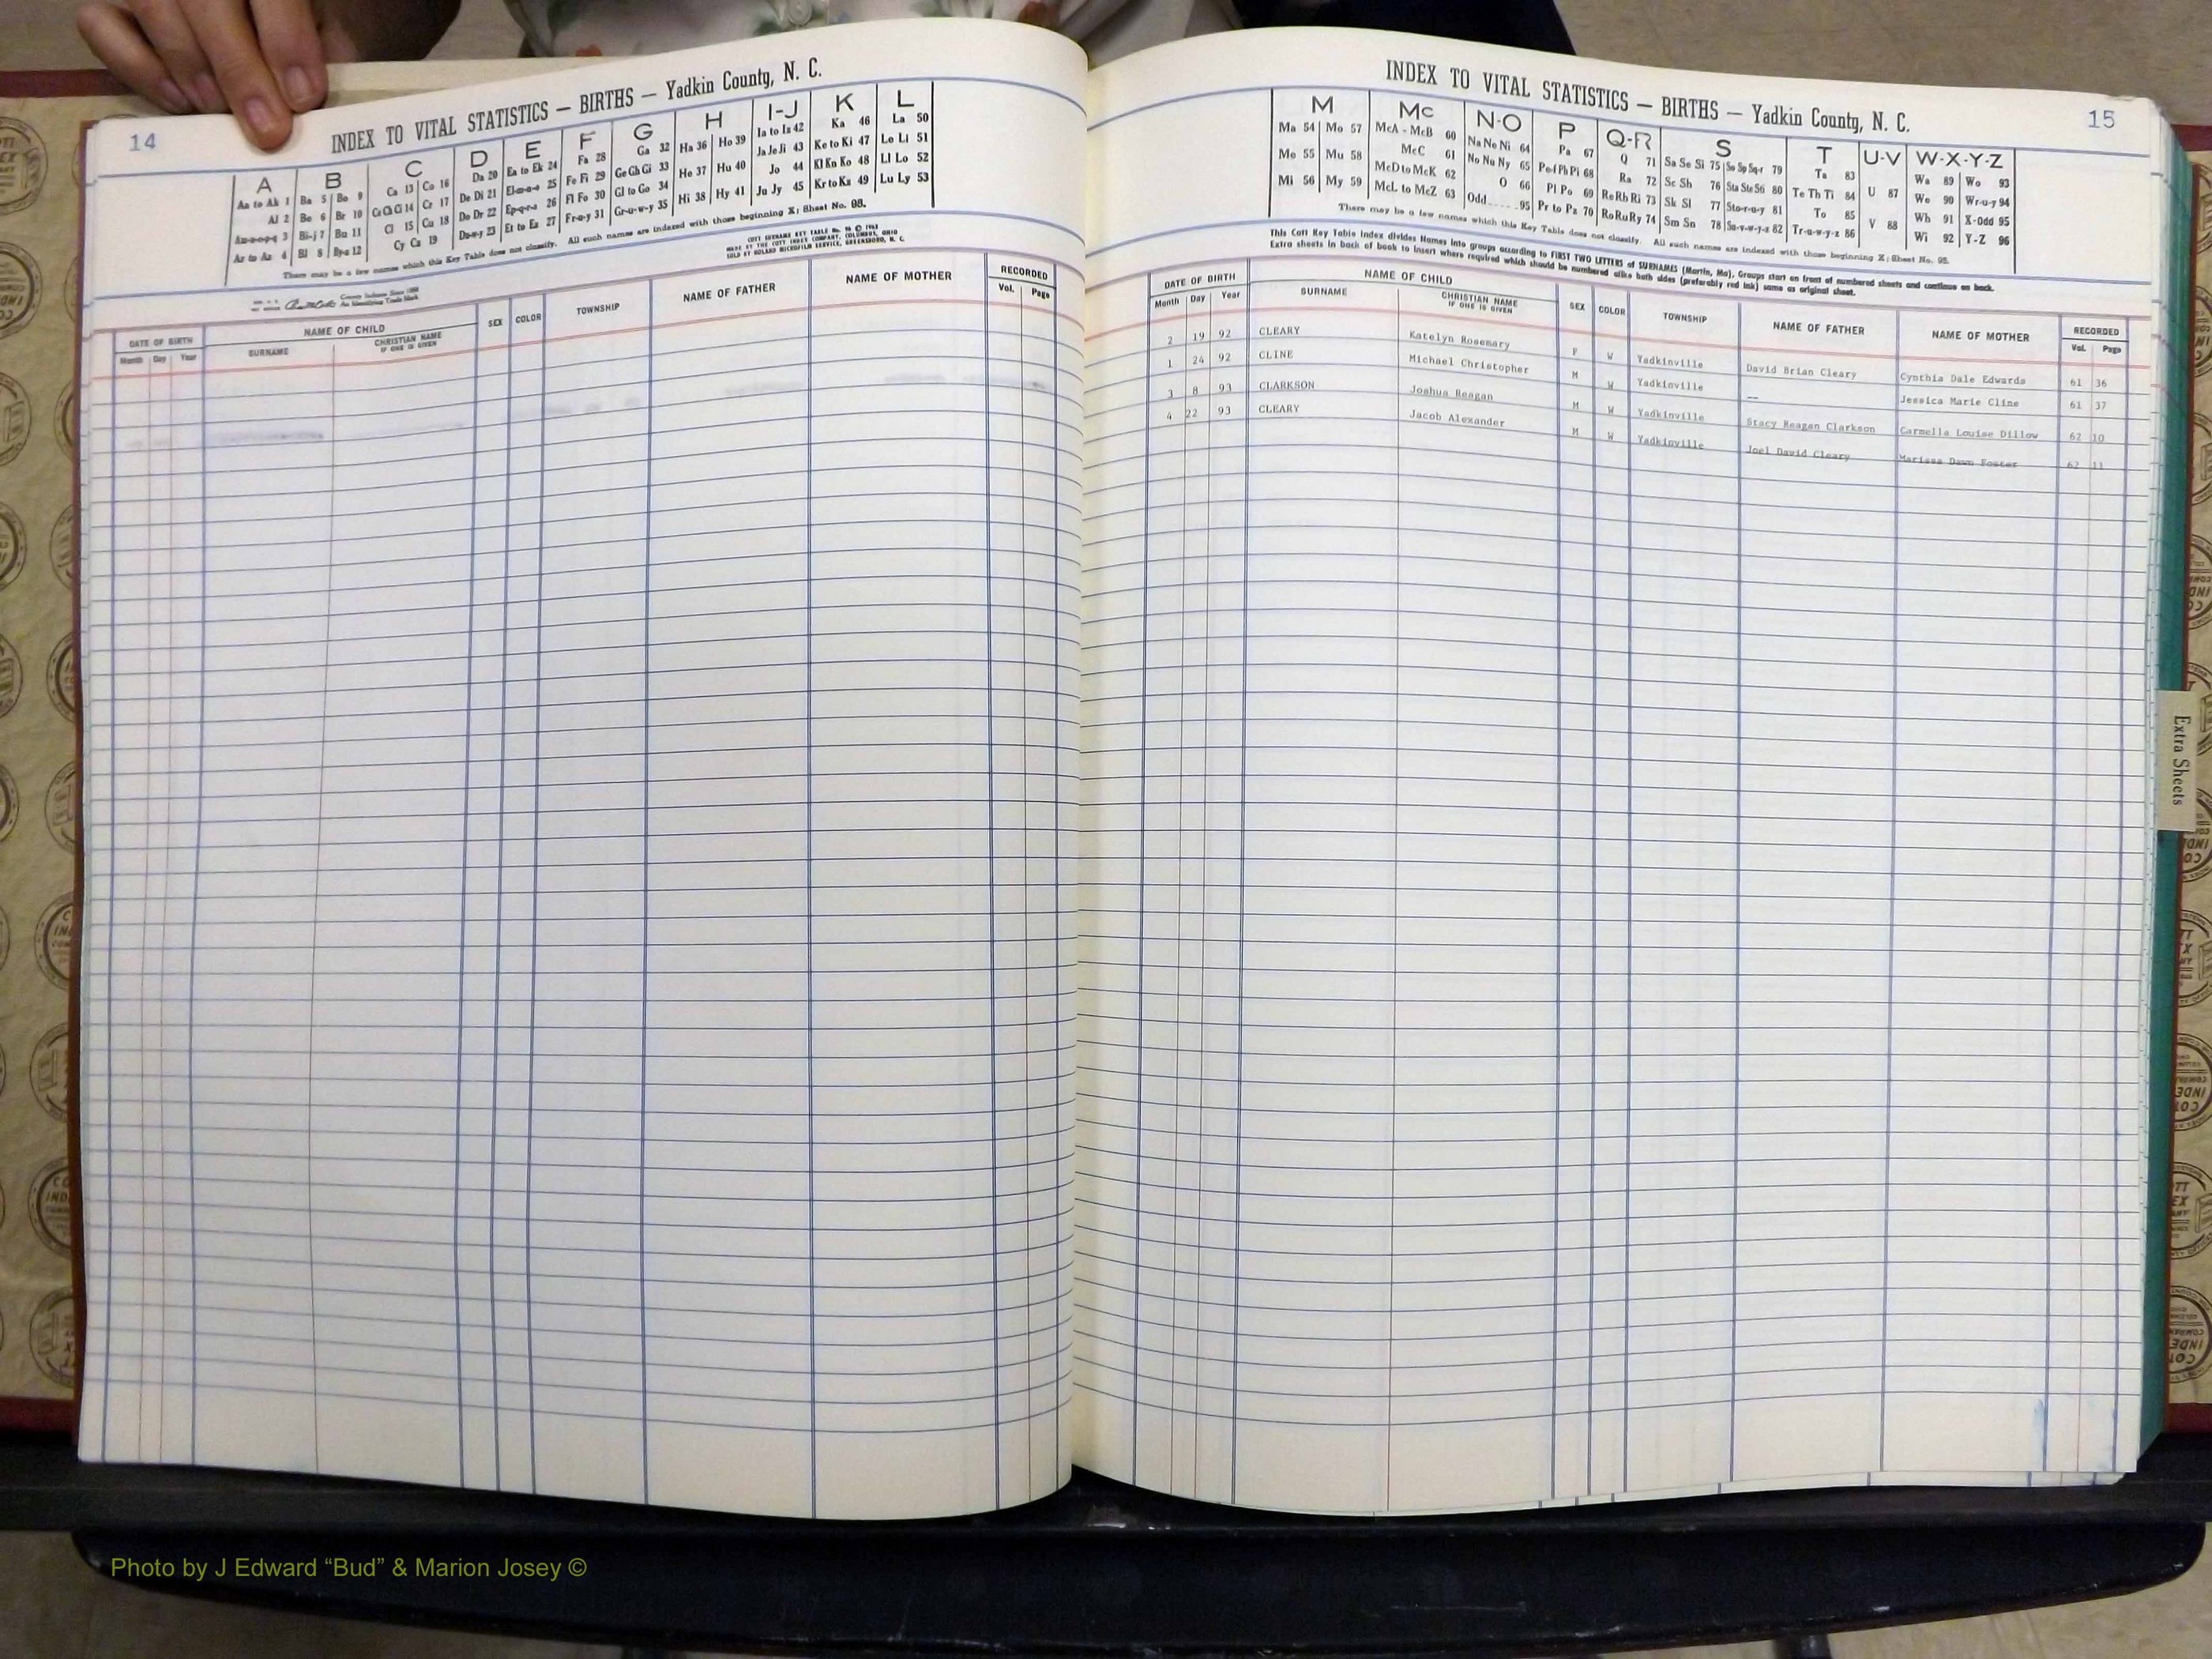 14
INDEX TO VITAL STATISTICS — BIRTHS — Yadkin County, N. C.
A B C D E F G H I-J K L
Aa to Ak 1 Ba 5 Be 9 Ca 13 Co 16 Da 20 Ea to Ek 24 Fa 28 Ga 32 Ha 36 Ho 39 Ia to Iz 42 Ka 46 La 50
Al 2 Be 6 Br 10 Ce Ch Ci 14 Cr 17 De Di 21 El-m-n-o 25 Fe Fi 29 Ge Gh Gi 33 He 37 Hu 40 Ja Je Ji 43 Ke to Ki 47 Le Li 51
3 Bi-j 7 Bu 11 Cl 15 Cu 18 Do Dr 22 Ep-q-r-s 26 Fl Fo 30 Gl to Go 34 Hi 38 Hy 41 Jo 44 Kl Kn Ko 48 Ll Lo 52
Ar to Az 4 Bl 8 By-z 12 Cy Cz 19 23 Et to Ez 27 Fr-u-y 31 Gr-u-w-y 35 Ju Jy 45 Kr to Kz 49 Lu Ly 53
There may be a few names which this Key Table does not classify. All such names are indexed with those beginning X; Sheet No. 95.
COTT SURNAME KEY TABLE
MADE BY THE COTT INDEX COMPANY, COLUMBUS, OHIO
SOLD BY ROLAND MICROFILM SERVICE, GREENSBORO, N. C.
County Indexes Since 1888
An Identifying Trade Mark
DATE OF BIRTH NAME OF CHILD SEX COLOR TOWNSHIP NAME OF FATHER NAME OF MOTHER RECORDED
Month Day Year SURNAME CHRISTIAN NAME IF ONE IS GIVEN Vol. Page
15
INDEX TO VITAL STATISTICS — BIRTHS — Yadkin County, N. C.
M Mc N-O P Q-R S T U-V W-X-Y-Z
Ma 54 Mo 57 McA - McB 60 Na Ne Ni 64 Pa 67 Q 71 Sa Se Si 75 So Sp Sq-r 79 Ta 83 U 87 Wa 89 Wo 93
Me 55 Mu 58 McC 61 No Nu Ny 65 Pe-f Ph Pi 68 Ra 72 Sc Sh 76 Sta Ste Sti 80 Te Th Ti 84 V 88 We 90 Wr-u-y 94
Mi 56 My 59 McD to McK 62 O 66 Pl Po 69 Re Rh Ri 73 Sk Sl 77 Sto-r-u-y 81 To 85 Wh 91 X-Odd 95
McL to McZ 63 Odd......95 Pr to Pz 70 Ro Ru Ry 74 Sm Sn 78 Su-v-w-y-z 82 Tr-u-w-y-z 86 Wi 92 Y-Z 96
There may be a few names which this Key Table does not classify. All such names are indexed with those beginning X; Sheet No. 95.
This Cott Key Table Index divides Names into groups according to FIRST TWO LETTERS of SURNAMES (Martin, Ma). Groups start on front of numbered sheets and continue on back.
Extra sheets in back of book to insert where required which should be numbered alike both sides (preferably red ink) same as original sheet.
DATE OF BIRTH NAME OF CHILD SEX COLOR TOWNSHIP NAME OF FATHER NAME OF MOTHER RECORDED
Month Day Year SURNAME CHRISTIAN NAME IF ONE IS GIVEN Vol. Page
2 19 92 CLEARY Katelyn Rosemary F W Yadkinville David Brian Cleary Cynthia Dale Edwards 61 36
1 24 92 CLINE Michael Christopher M W Yadkinville -- Jessica Marie Cline 61 37
3 8 93 CLARKSON Joshua Reagan M W Yadkinville Stacy Reagan Clarkson Carmella Louise Dillow 62 10
4 22 93 CLEARY Jacob Alexander M W Yadkinville Joel David Cleary Marissa Dawn Foster 62 11
Extra Sheets
Photo by J Edward “Bud” & Marion Josey ©